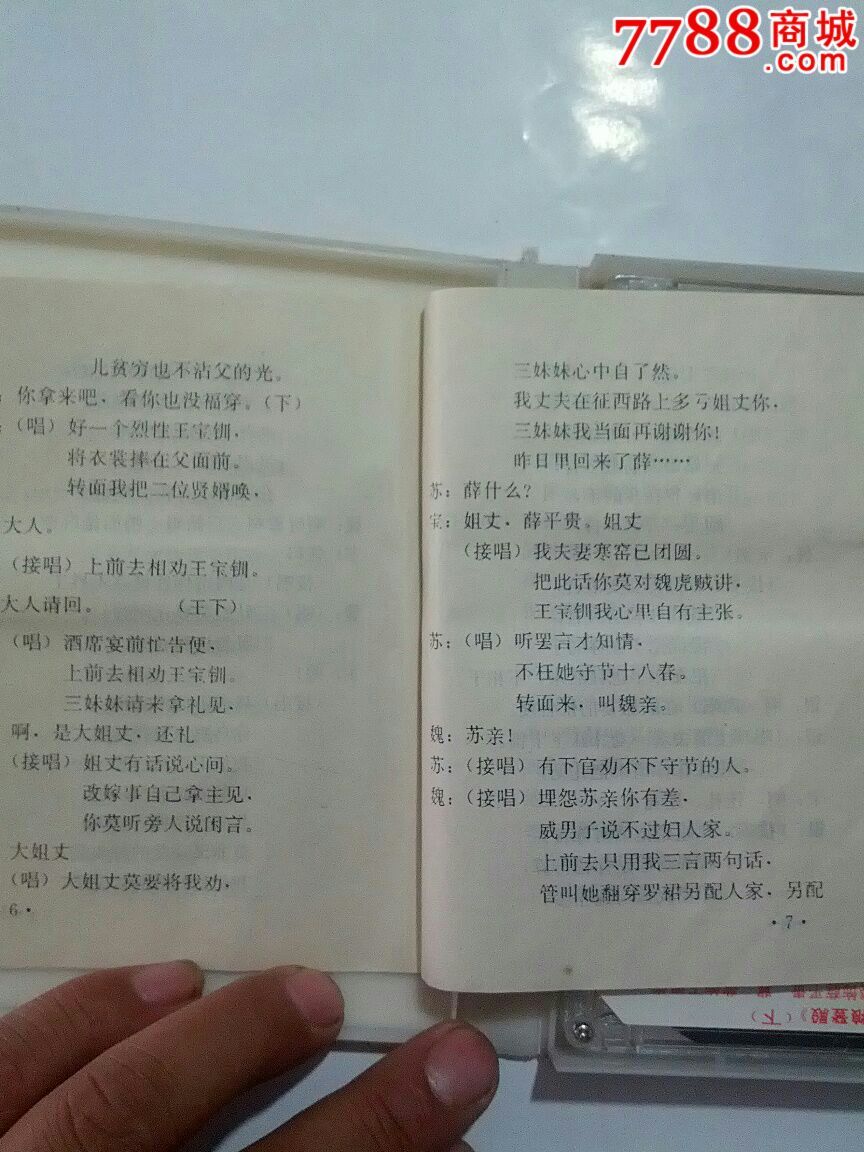 7788商城
.com
儿贫穷也不沾父的光。
：你拿来吧，看你也没福穿。(下)
：(唱)好一个烈性王宝钏，
将衣裳摔在父面前。
转面我把二位贤婿唤，
大人。
(接唱)上前去相劝王宝钏。
大人请回。 (王下)
(唱)酒席宴前忙告便，
上前去相劝王宝钏。
三妹妹请来拿礼见，
啊，是大姐丈，还礼
(接唱)姐丈有话说心间。
改嫁事自己拿主见，
你莫听旁人说闲言。
大姐丈
(唱)大姐丈莫要将我劝，
6·
三妹妹心中自了然。
我丈夫在征西路上多亏姐丈你，
三妹妹我当面再谢谢你!
昨日里回来了薛……
苏：薛什么?
宝：姐丈，薛平贵。姐丈
(接唱)我夫妻寒窑已团圆。
把此话你莫对魏虎贼讲，
王宝钏我心里自有主张。
苏：(唱)听罢言才知情，
不枉她守节十八春。
转面来，叫魏亲。
魏：苏亲!
苏：(接唱)有下官劝不下守节的人。
魏：(接唱)埋怨苏亲你有差，
威男子说不过妇人家。
上前去只用我三言两句话，
管叫她翻穿罗裙另配人家，另配
·7·
登殿》(下)